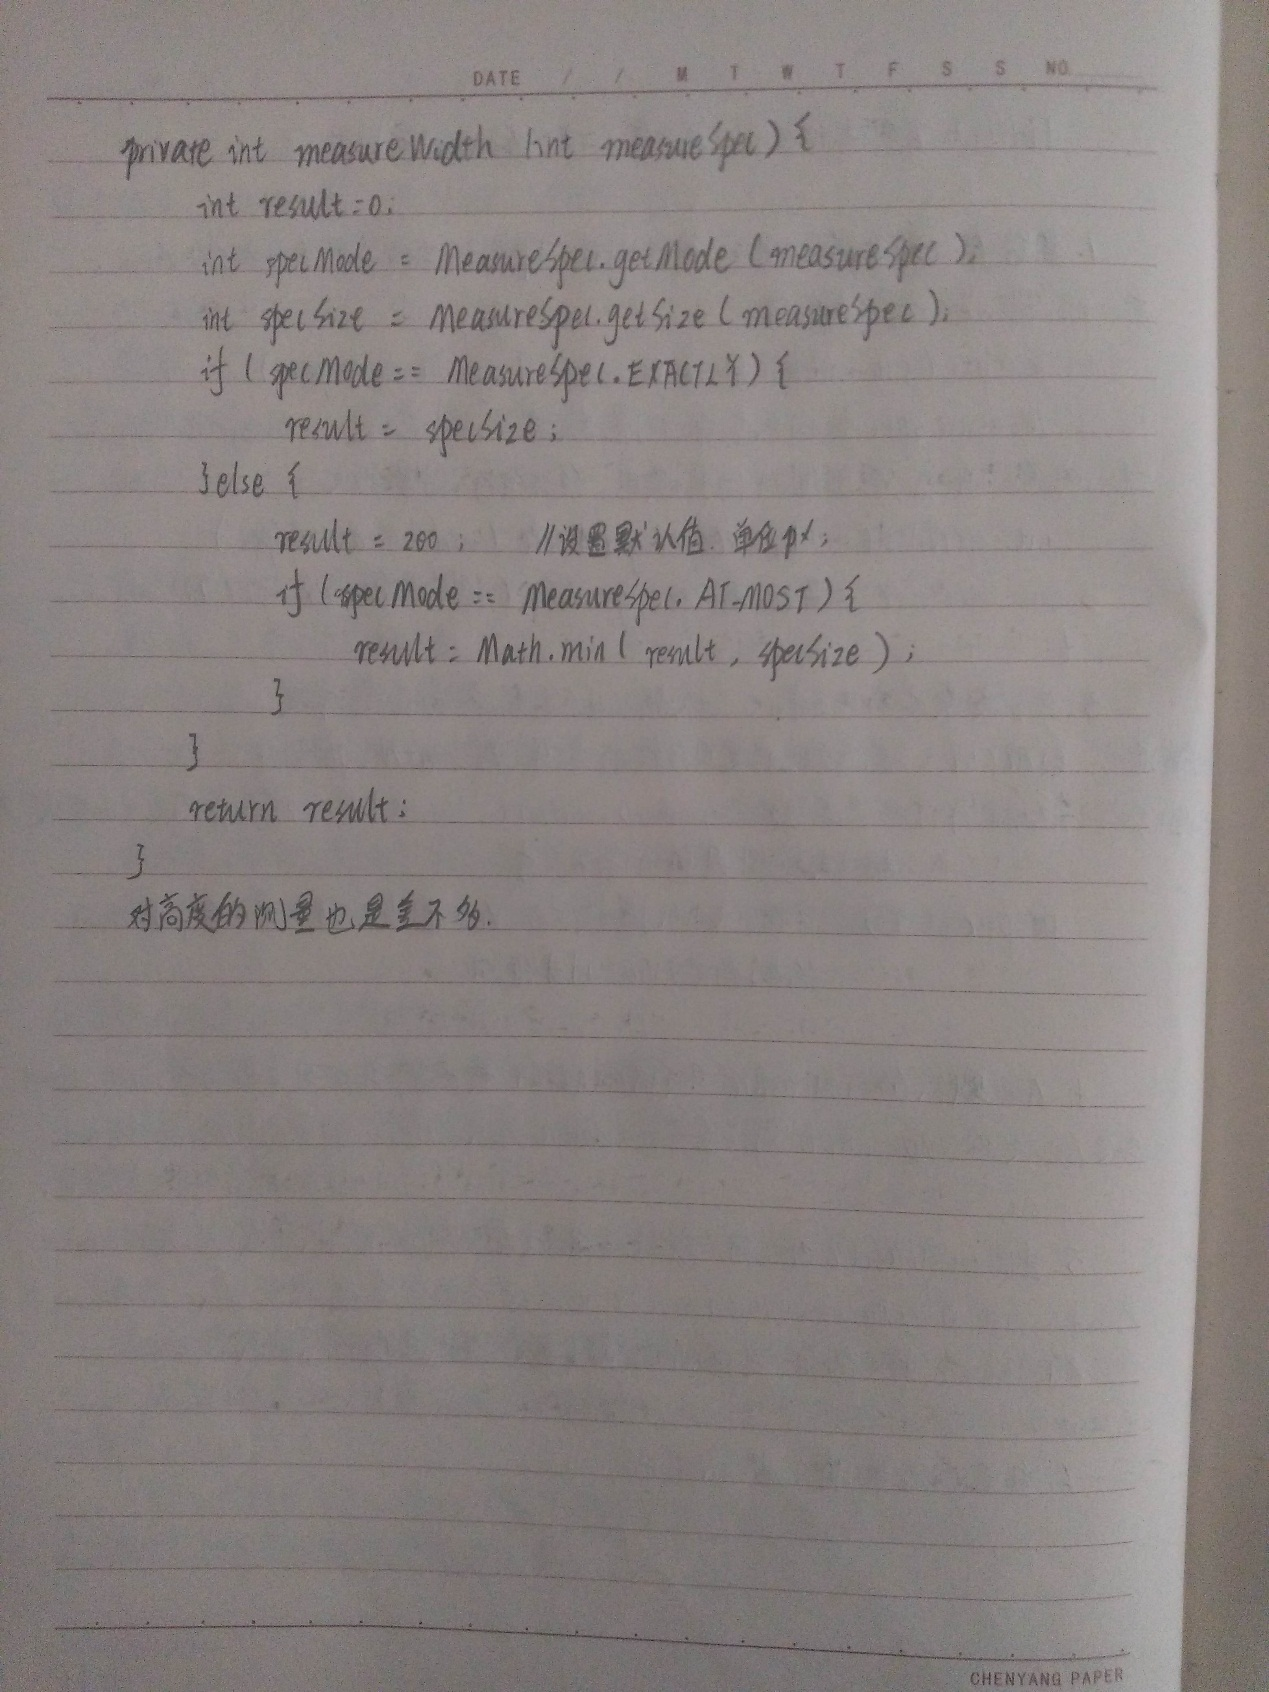 DATE / / M T W T F S S NO.
private int measureWidth (int measureSpec) {
int result=0;
int specMode = MeasureSpec.getMode (measureSpec);
int specSize = MeasureSpec.getSize (measureSpec);
if (specMode == MeasureSpec.EXACTLY) {
result = specSize;
}else {
result = 200; //设置默认值.单位px;
if (specMode == MeasureSpec.AT_MOST) {
result = Math.min( result, specSize );
}
}
return result;
}
对高度的测量也是差不多.
CHENYANG PAPER